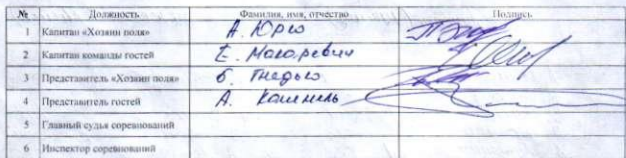 № Должность Фамилия, имя, отчество Подпись
1 Капитан «Хозяин поля» А. Юрго
2 Капитан команды гостей Е. Макаревич
3 Представитель «Хозяин поля» Б. Гнедько
4 Представитель гостей А.
5 Главный судья соревнований
6 Инспектор соревнований